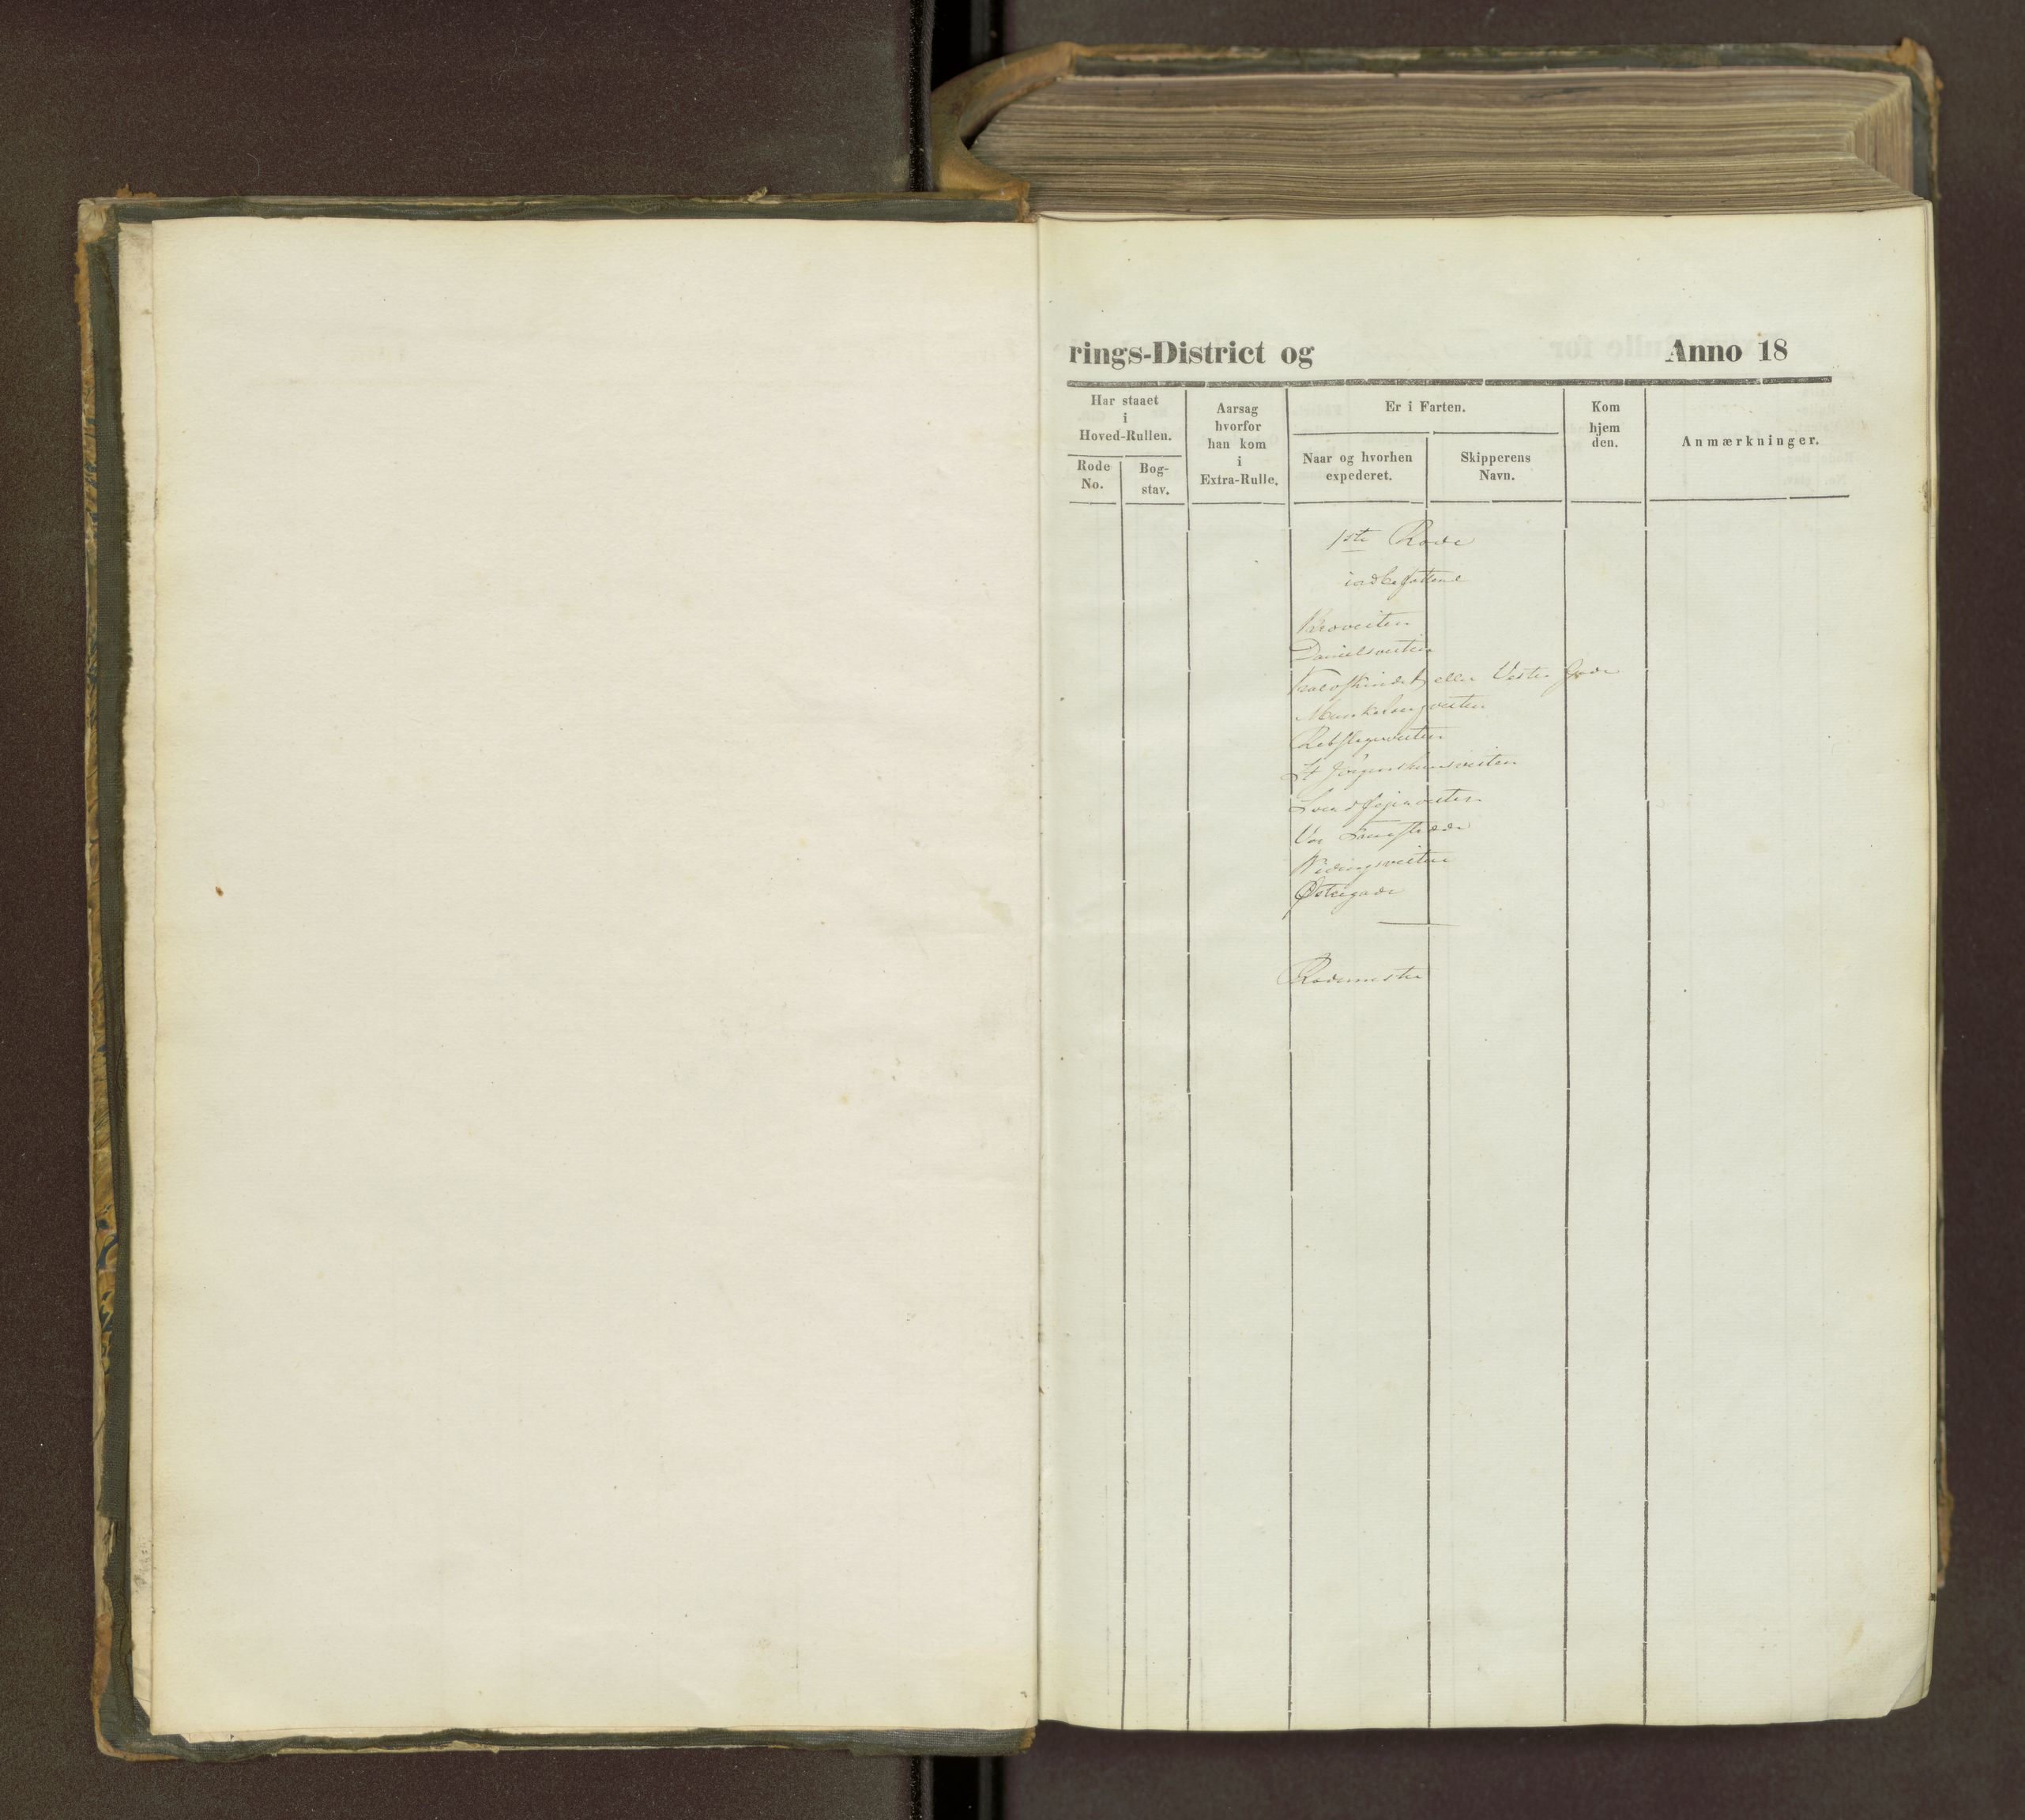 rings-District og Anno 18
Har staaet
i
Hoved-Rullen.
Rode
No.
Bog-
stav.
Aarsag
hvorfor
han kom
i
Extra-Rulle.
Er i Farten.
Naar og hvorhen
expederet.
Skipperens
Navn.
Kom
hjem
den.
Anmærkninger.
1ste Rode
indbefattend
Broveiten
Danielsveiten
Kalvskindet eller Vestre Gade
Munkhaugveiten
Rebslagerveiten
St Jørgenshuusveiten
veiten
Vor Frue stræde
Widingsveiten
Østregade
Rodemester